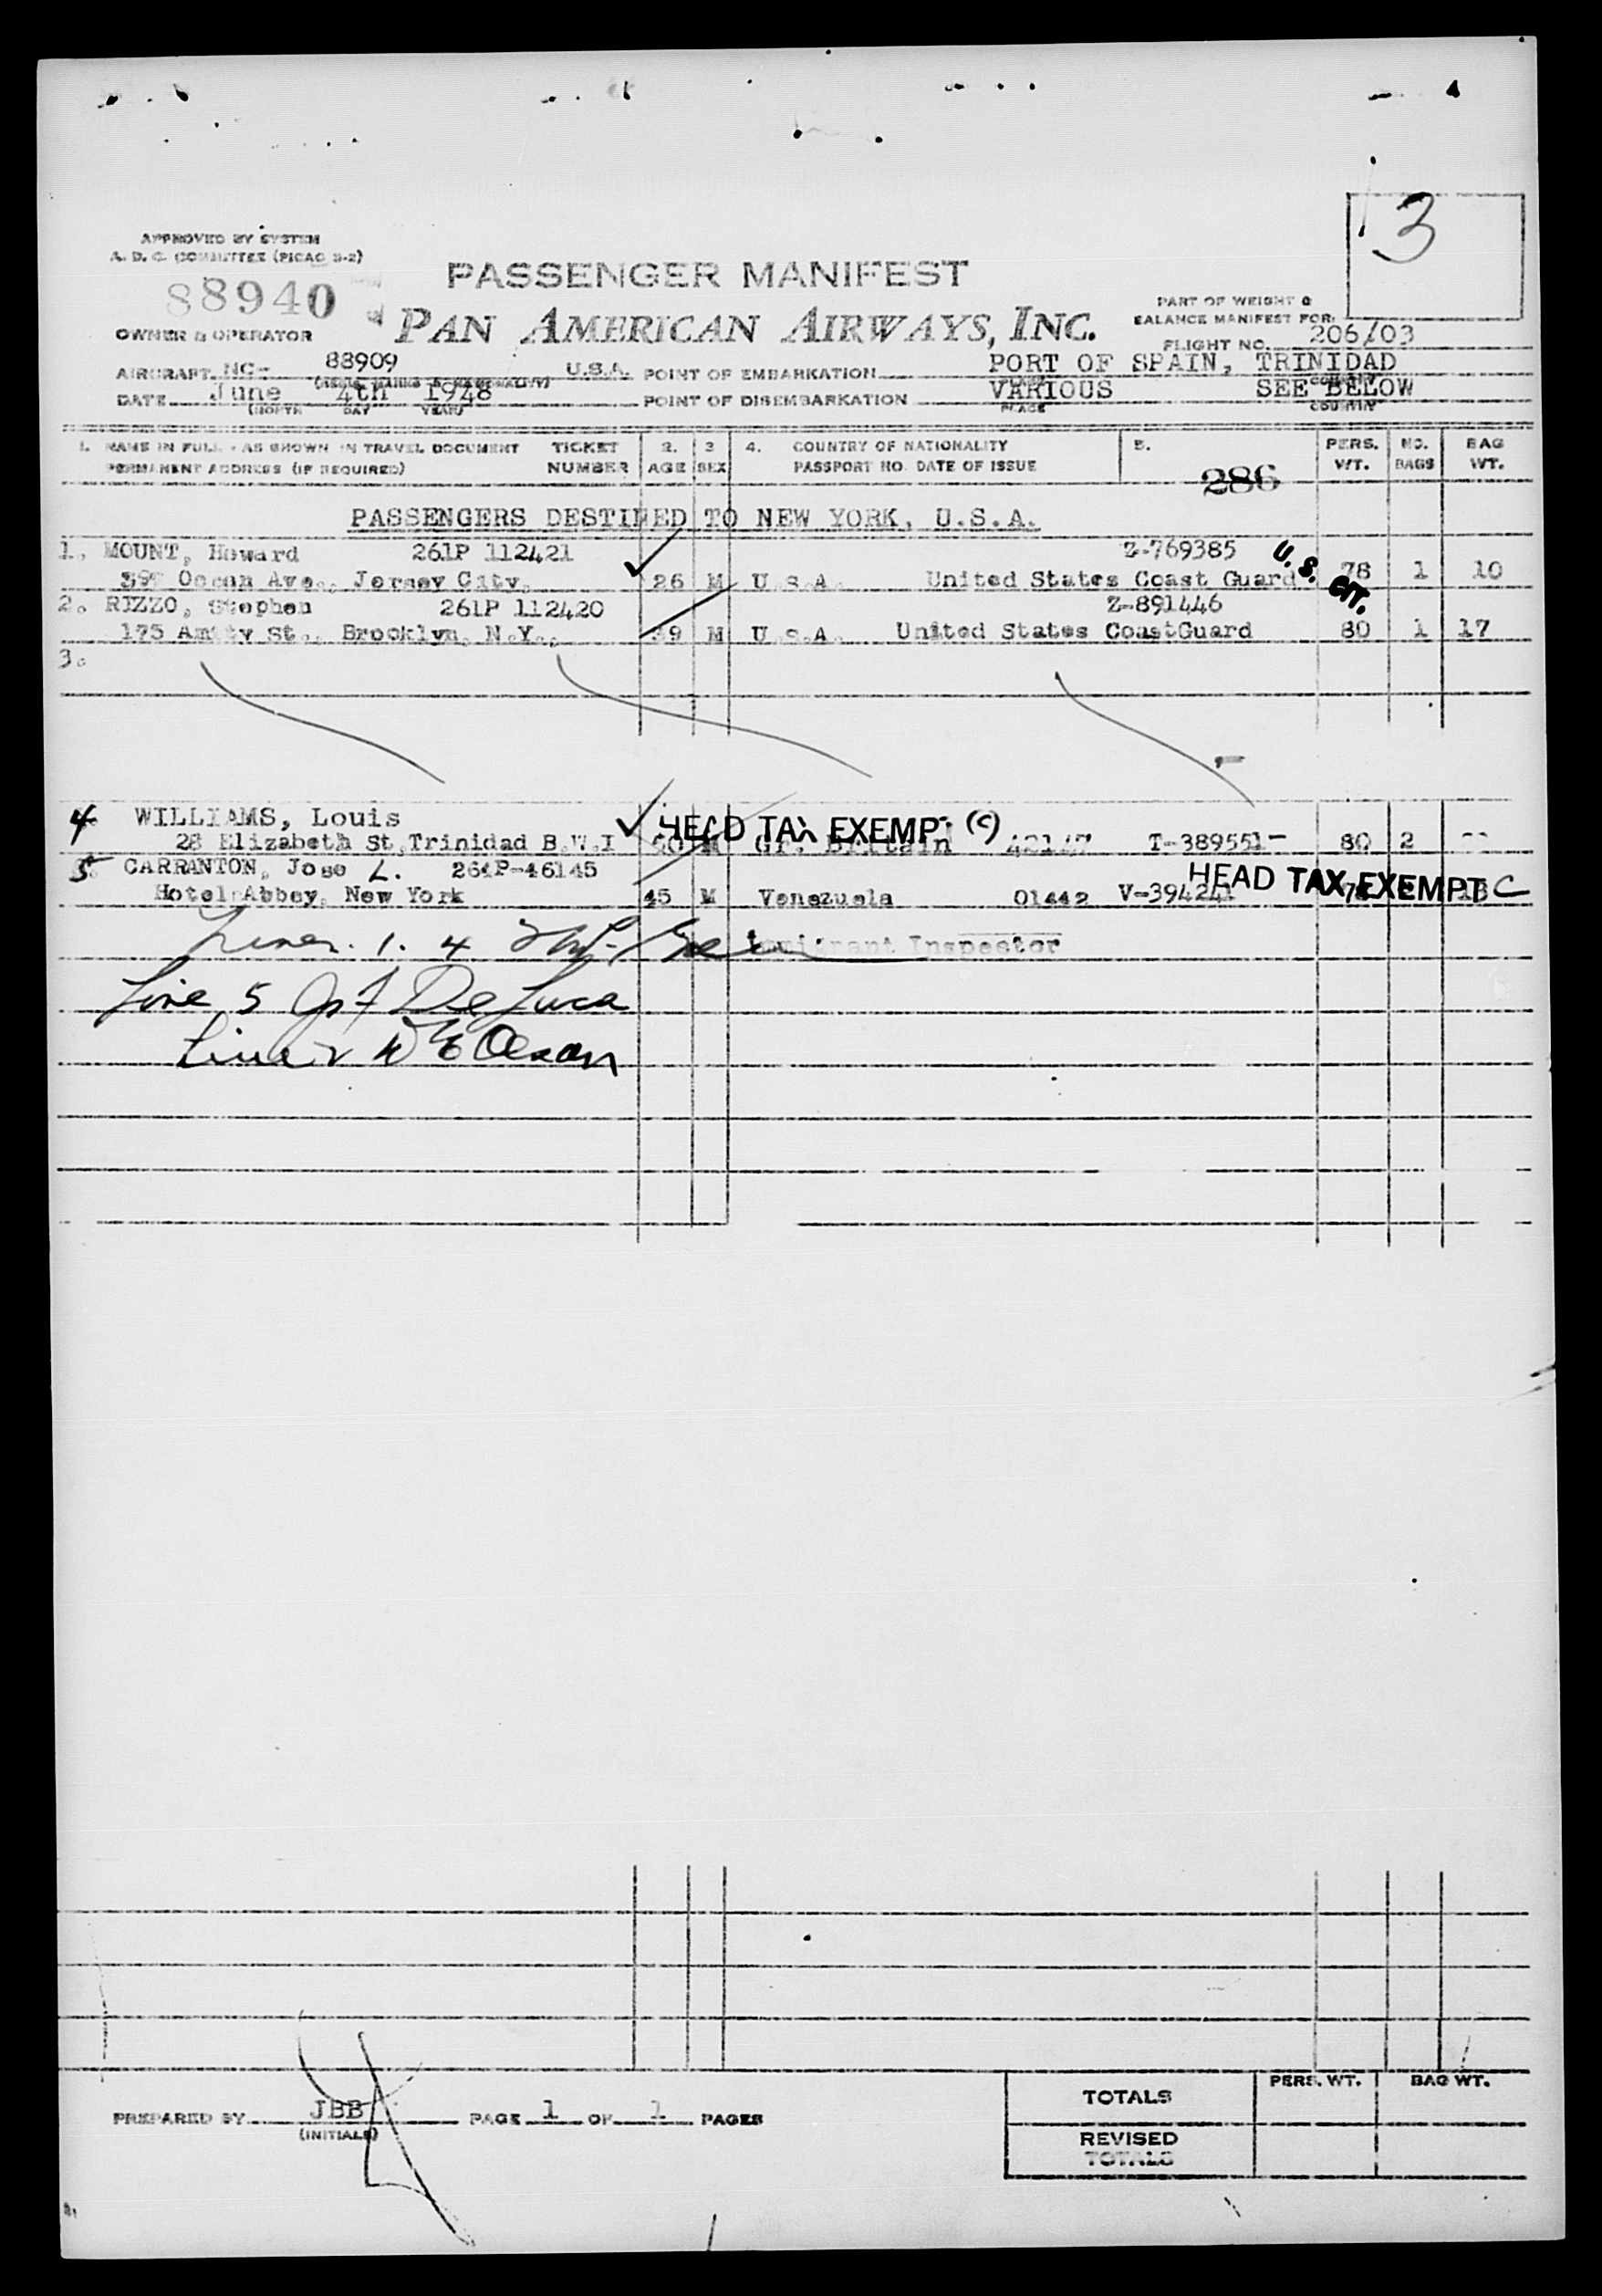 3
APPROVED BY SYSTEM
A. D. C. COMMITTEE (PICAO S-2)
88940
PASSENGER MANIFEST
PART OF WEIGHT &
BALANCE MANIFEST FOR
OWNER & OPERATOR PAN AMERICAN AIRWAYS, INC.
FLIGHT NO. 206/03
AIRCRAFT NC- 88909 U.S.A. POINT OF EMBARKATION PORT OF SPAIN, TRINIDAD
DATE June 4th 1948 POINT OF DISEMBARKATION VARIOUS SEE BELOW
(MONTH DAY YEAR) PLACE COUNTRY
1. NAME IN FULL - AS SHOWN IN TRAVEL DOCUMENT TICKET 2. 3 4. COUNTRY OF NATIONALITY 5. PERS. NO. BAG
PERMANENT ADDRESS (IF REQUIRED) NUMBER AGE SEX PASSPORT NO. DATE OF ISSUE WT. BAGS WT.
286
PASSENGERS DESTINED TO NEW YORK, U.S.A.
1. MOUNT, Howard 261P 112421 Z-769385 U.S. CIT.
Ocean Ave., Jersey City, 26 M U.S.A. United States Coast Guard 78 1 10
2. RIZZO, Stephen 261P 112420 Z-891446
175 Amity St., Brooklyn, N.Y., 39 M U.S.A. United States CoastGuard 80 1 17
3.
4 WILLIAMS, Louis HEAD TAX EXEMPT (C)
28 Elizabeth St, Trinidad B.W.I M Gt. Britain T-389551 80 2
5 CARRANTON, Jose L. 261P-46145 HEAD TAX EXEMPT C
Hotel Abbey, New York 45 M Venezuela 01442 V-394241
Lines 1. 4 Immigrant Inspector
Line 5 De Luca
Line 2 W E Olson
PREPARED BY JBB PAGE 1 OF 1 PAGES
(INITIALS)
PERS. WT. BAG WT.
TOTALS
REVISED
TOTALS